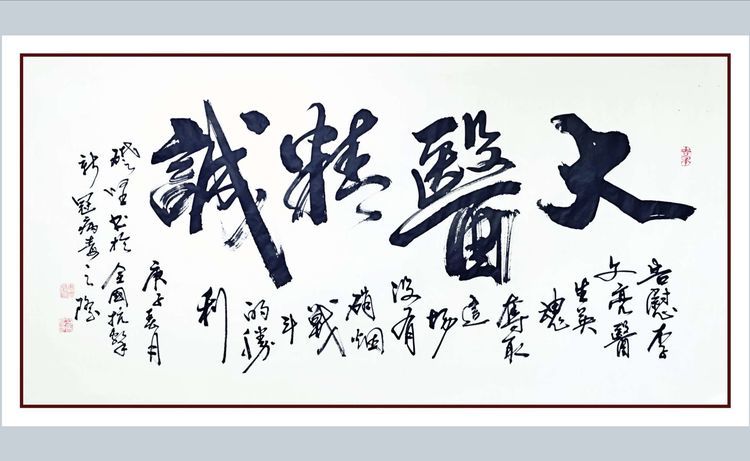 大醫精誠
告慰李
文亮醫
生英
魂
奪取
這
场
没有
硝烟
戰
斗
的勝
利
庚子春月
书於全國抗擊
新冠病毒之際